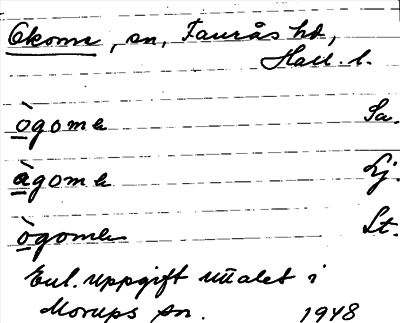 Okome, sn, Faurås hd,
Hall. l.
ògome Sa.
àgome Lj.
ògome St.
Enl. uppgift målet i
Morups sn. 1948